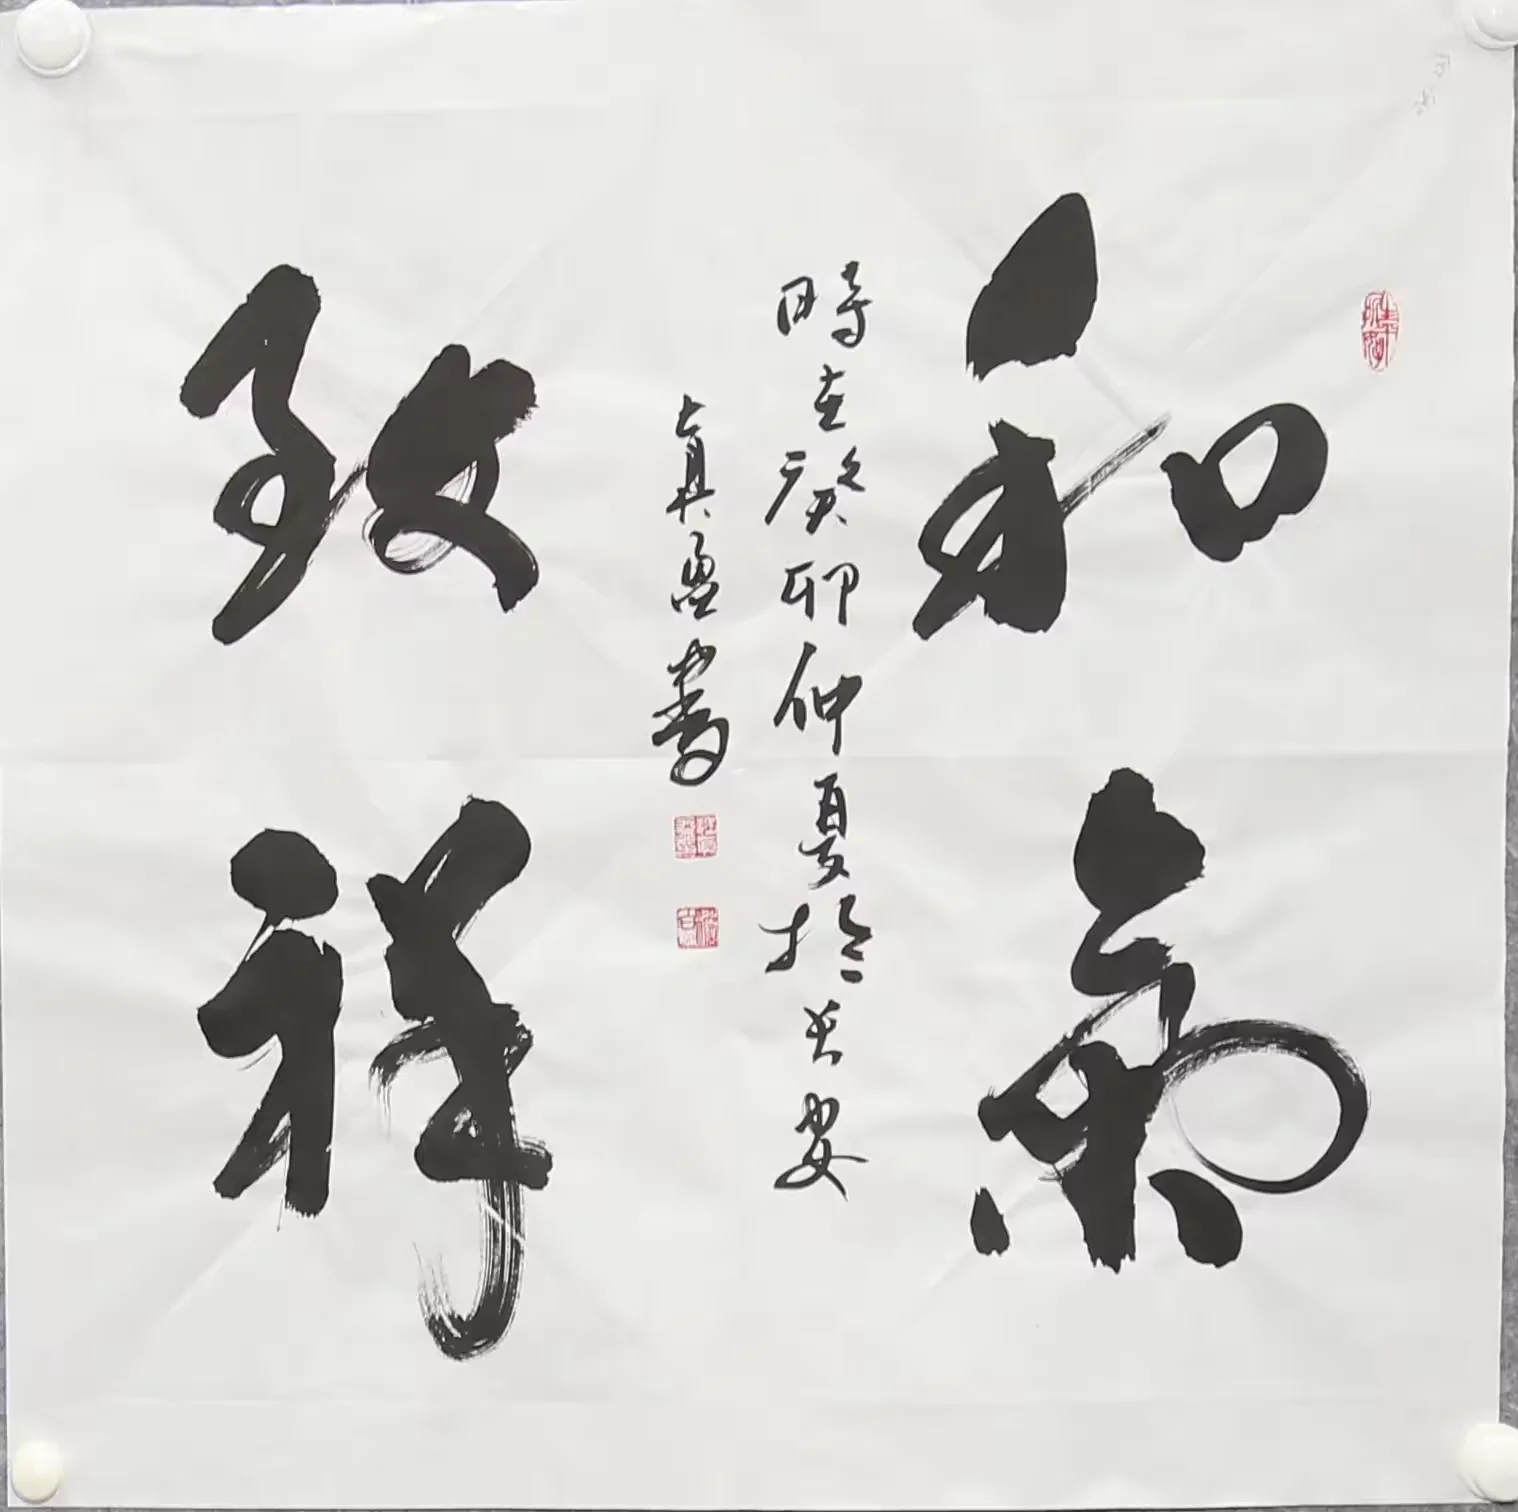 和氣
致祥
時在癸卯仲夏於長安
真愚書